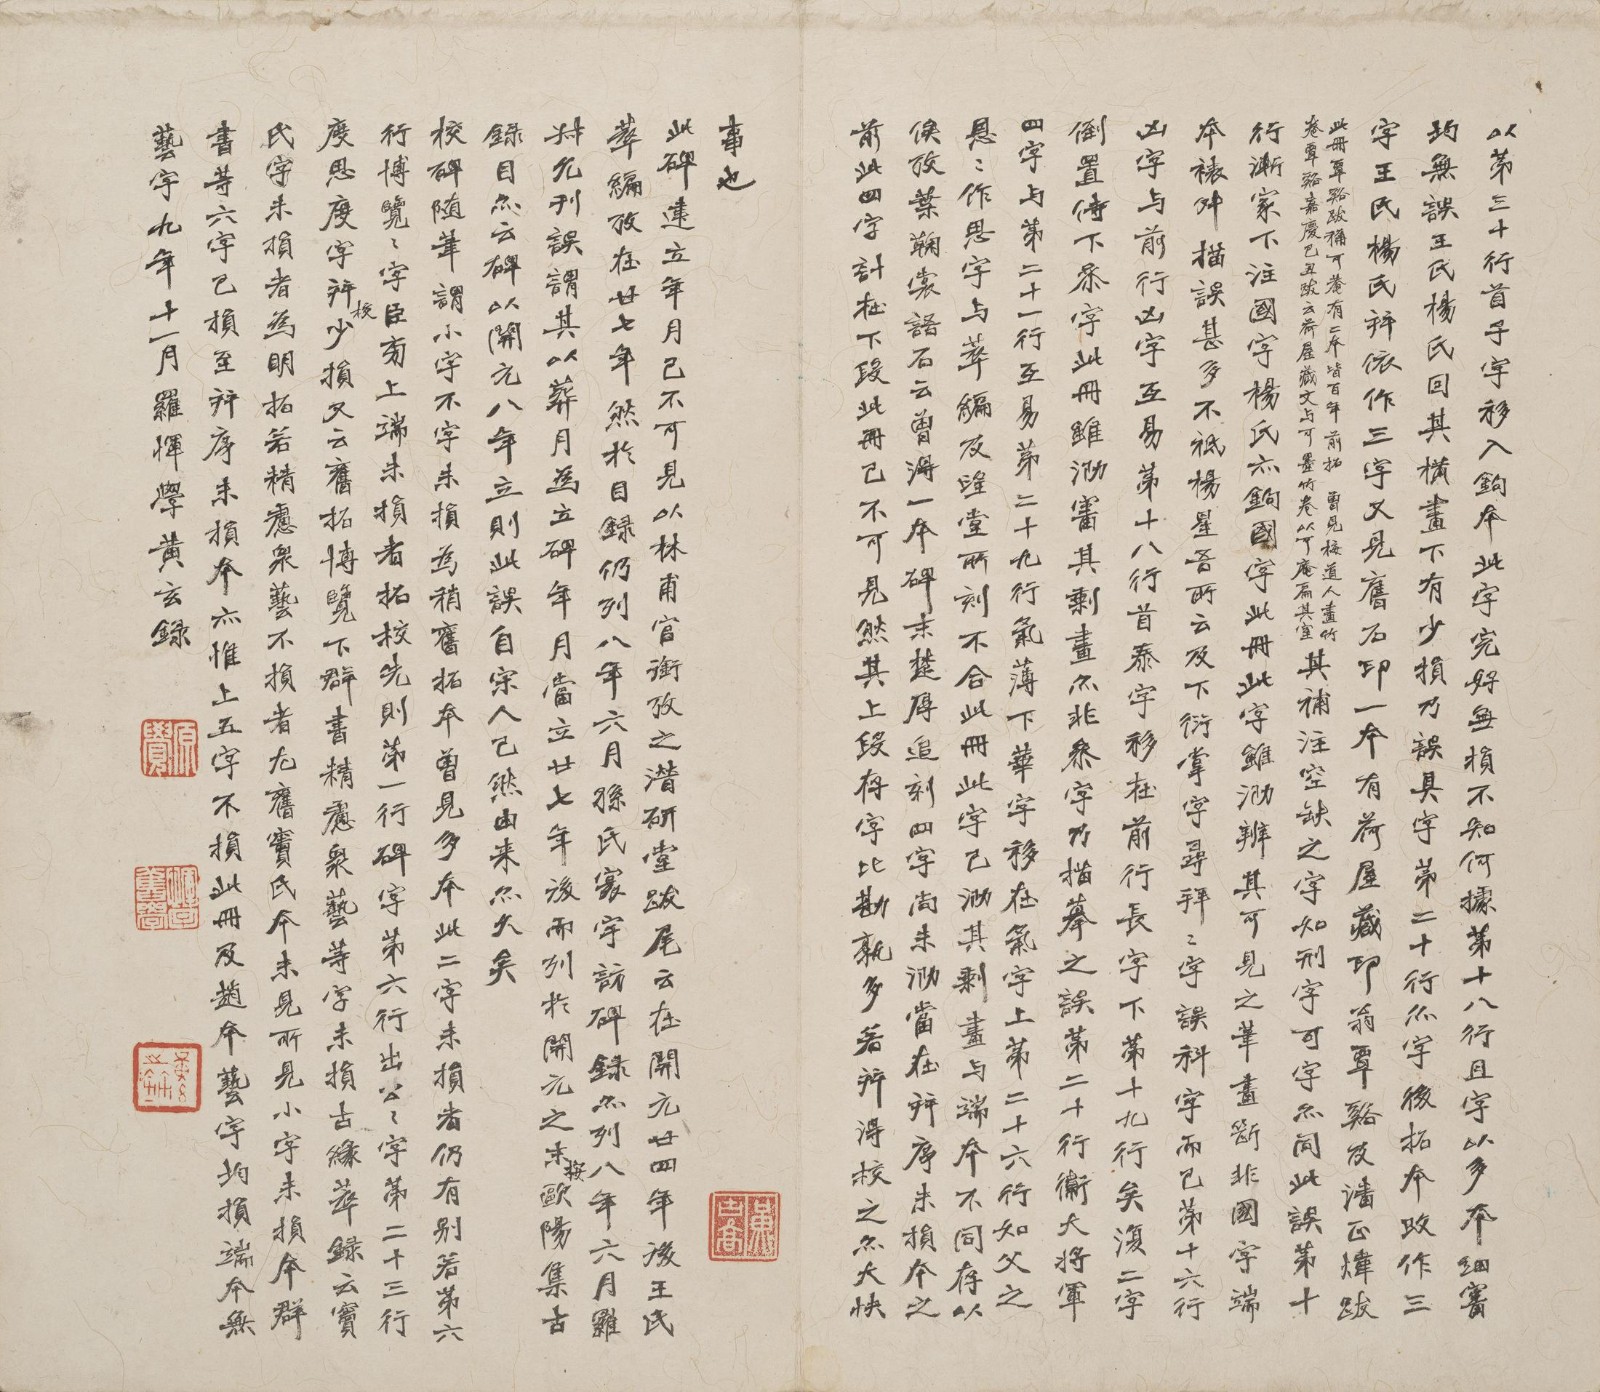 以第三十行首子字移入鉤本此字完好無損不知何據第十八行且字以多本細審
均無誤王氏楊氏回其橫畫下有少損乃誤具字第二十行亦字後拓本改作三
字王氏楊氏釋依作三字又見舊石印一本有荷屋藏印翁覃谿及潘正煒跋
此冊覃谿跋稱可菴有二本皆百年前拓 曾見梅道人畫竹
卷覃谿嘉慶己丑跋云荷屋藏文与可墨竹卷以可庵扁其室
其補注空缺之字如刑字可字亦同此誤第十
行漸家下注國字楊氏亦鉤國字此冊此字雖泐辨其可見之筆畫斷非國字端
本裱艸描誤甚多不祇楊星吾所云及下衍掌字尋拜〻字誤科字而已第十六行
凶字与前行凶字互易第十八行首泰字移在前行長字下第十九行矣復二字
倒置侍下叅字此冊雖泐審其剩畫亦非叅字乃描摹之誤第二十行衞大將軍
四字与第二十一行互易第二十九行氣薄下華字移在氣字上第二十六行如父之
恩〻作思字与萃編及望堂所刻不合此冊此字已泐其剩畫与端本不同存以
俟攷葉鞠裳語石云曾得一本碑末楚厚追刻四字尚未泐當在辨序未損本之
前此四字計在下段此冊已不可見然其上段存字比勘孰多若辨得校之亦大快
事也
此碑建立年月已不可見以林甫官銜攷之潛研堂跋尾云在開元廿四年後王氏
萃編攷在廿七年然於目錄仍列八年六月孫氏寰宇訪碑錄亦列八年六月羅
氏刊誤謂其以葬月為立碑年月當立廿七年後而列於開元之末按歐陽集古
錄目亦云碑以開元八年立則此誤自宋人已然由来亦久矣
校碑随筆謂小字不字未損為稍舊拓本曾見多本此二字未損者仍有别若第六
行博覽〻字臣甫上端未損者拓校先則第一行碑字第六行出公〻字第二十三行
度思度字辨校少損又云舊拓博覽下群書精慮衆藝等字未損古緣萃録云竇
氏字未損者為明拓若精慮衆藝不損者尤舊竇氏本未見所見小字未損本群
書等六字已損至辨序未損本亦惟上五字不損此冊及趙本藝字均損端本無
藝字九年十一月羅惲學黄玄録